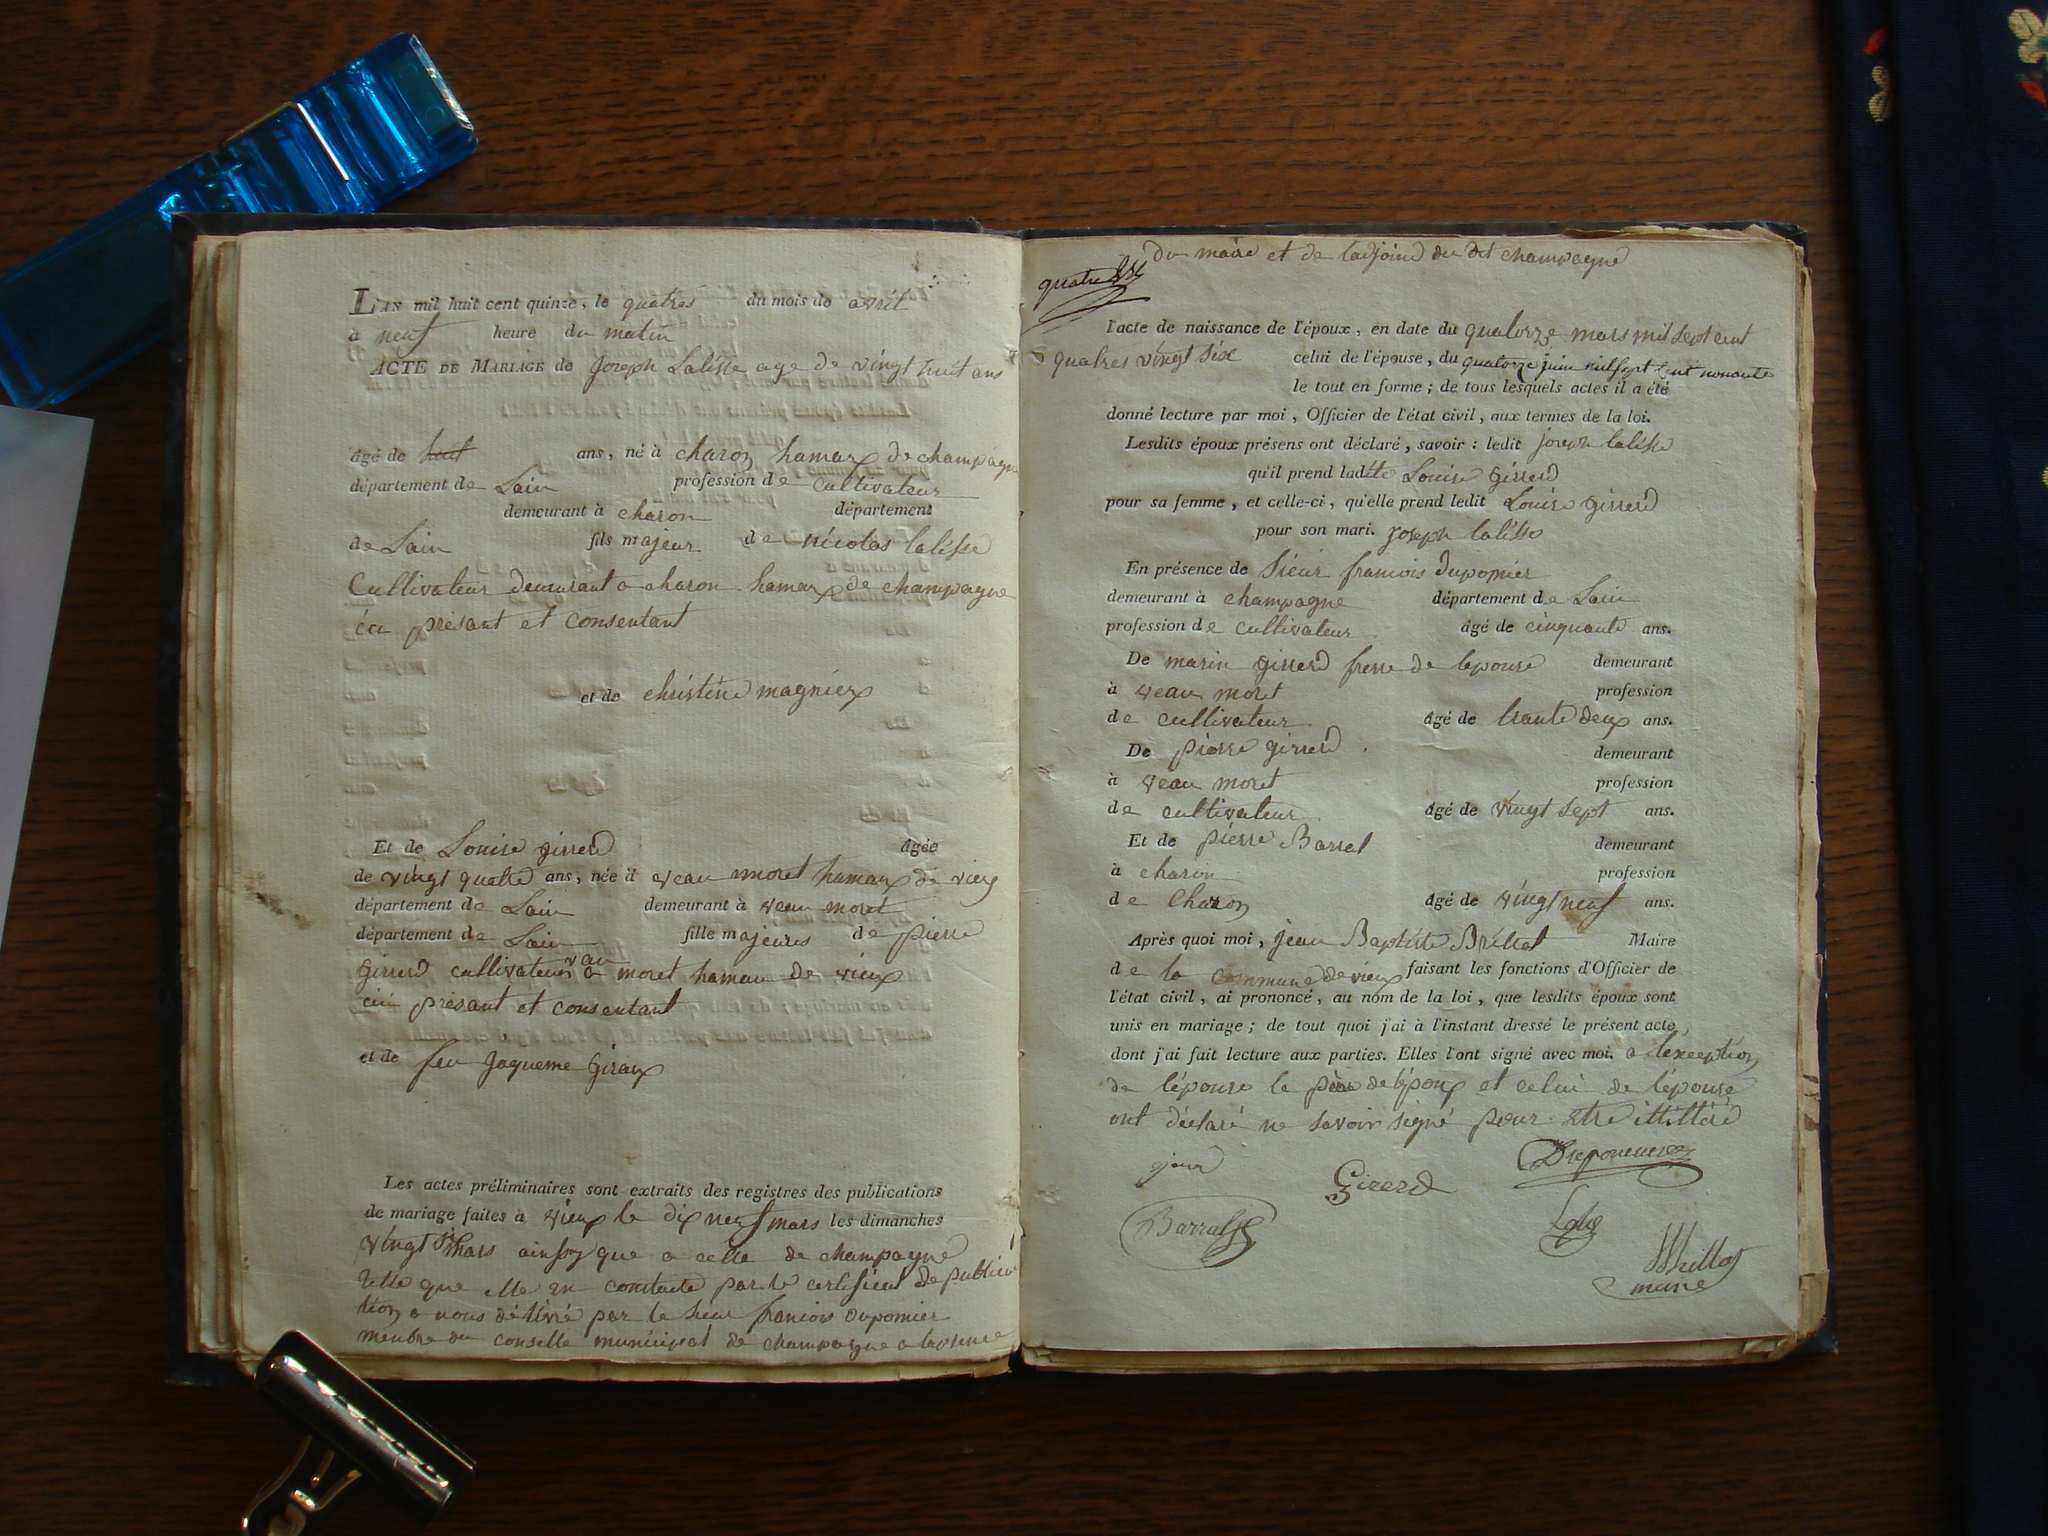 L'AN mil huit cent quinze, le quatres du mois de avril
à neuf heure du matin
ACTE DE MARIAGE de Joseph Lalisse age de vingt huit ans
âgé de huit ans, né à charon hamax de champagne
département de Lain profession de cultivateur
demeurant à charon département
de Lain fils majeur de nicolas lalisse
Cultivateur demurant a charon hamax de champagne
ici présant et consentant
et de christine magniex
Et de Louise girrerd âgée
de vingt quatre ans, née à veau moret hamax de vieux
département de Lain demeurant à veau moret
département de Lain fille majeures de pierre
girrerd cultivateur a vau moret hamau de vieux
ici présant et consentant
et de feu Jaqueme Giraux
Les actes préliminaires sont extraits des registres des publications
de mariage faites à vieux le dix neuf mars les dimanches
vingt six mars ainssy que a celle de champagne
telle que elle en constaté par le certificat de publica
tion a nous délivré par le sieur francois dupomier
menbre du conselle municipat de champagne a labsence
du maire et de ladjoint du dit champagne
quatre
l'acte de naissance de l'époux, en date du quatorze mars mil sept cent
quatres vingt six celui de l'épouse, du quatorze juin mil sept cent nonante
le tout en forme ; de tous lesquels actes il a été
donné lecture par moi, Officier de l'état civil, aux termes de la loi.
Lesdits époux présens ont déclaré, savoir : ledit joseph lalisse
qu'il prend ladite Louise girrerd
pour sa femme, et celle-ci, qu'elle prend ledit Louise girrerd
pour son mari. joseph lalisse
En présence de Sieur francois dupomier
demeurant à champagne département de Lain
profession de cultivateur âgé de cinquante ans.
De marin girrerd frerre de lepouse demeurant
à veau moret profession
de cultivateur âgé de trante deux ans.
De pierre girrerd demeurant
à veau moret profession
de cultivateur âgé de vingt sept ans.
Et de pierre Barral demeurant
à charon profession
de Charon âgé de vingt neuf ans.
Après quoi moi, jean Baptiste Brillat Maire
de la commune de vieux faisant les fonctions d'Officier de
l'état civil, ai prononcé, au nom de la loi, que lesdits époux sont
unis en mariage ; de tout quoi j'ai à l'instant dressé le présent acte,
dont j'ai fait lecture aux parties. Elles l'ont signé avec moi. a lexception
de lépouse le père de lépoux et celui de lépouse
ont déclaré ne savoir signé pour etre ittittéré
Girerd
Barral
maire